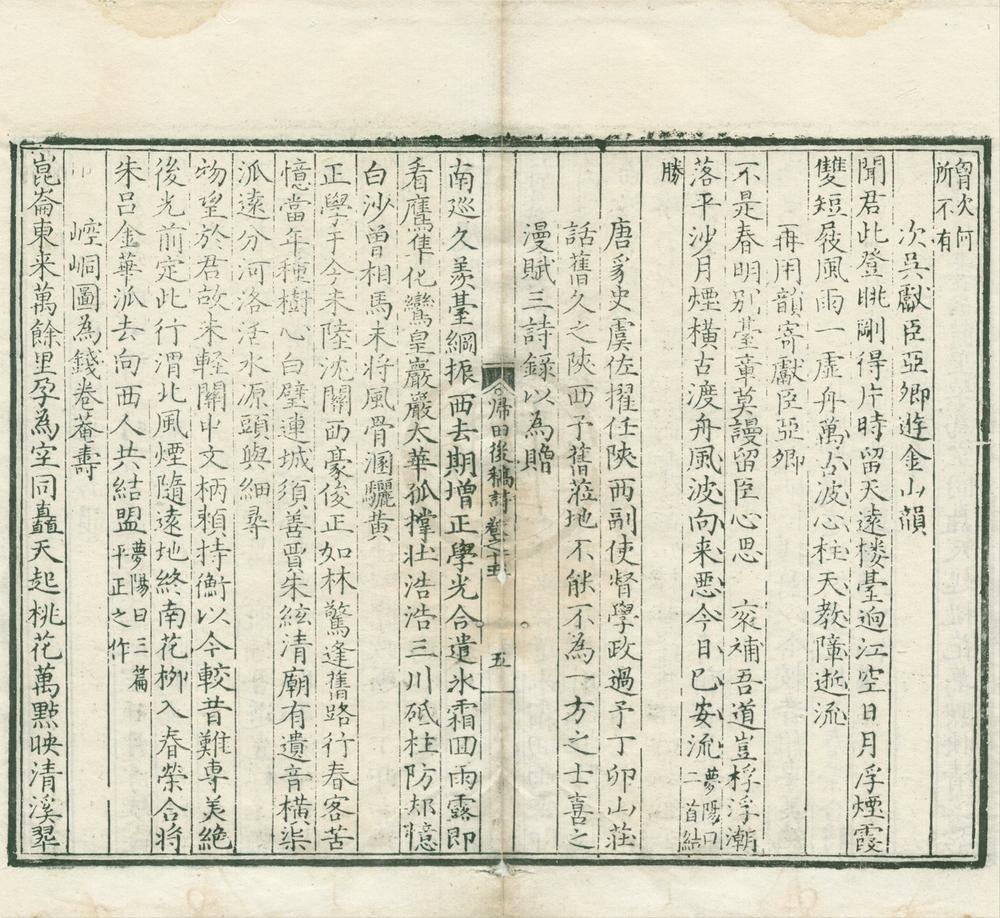 胷次何
所不有
次吳獻臣亞卿遊金山韻
聞君此登眺剛得片時留天遠楼臺逈江空日月浮煙霞
雙短屐風雨一虛舟萬古波心柱天教障逝流
再用韻寄獻臣亞卿
不是春明别臺章莫謾留臣心思 衮補吾道豈桴浮潮
落平沙月煙橫古渡舟風波向来悪今日已安流
夢陽曰
二首結
勝
唐豸史虞佐擢任陝西副使督學政過予丁卯山莊
話舊久之陝西予舊蒞地不能不為一方之士喜之
漫賦三詩録以為贈
歸田後稿詩
卷之十五
五
南廵久羡臺綱振西去期增正學光合遣氷霜囬雨露即
看鷹隼化鸞皇巖巖太華孤撑壮浩浩三川砥柱防却憶
白沙曾相馬未將風骨溷驪黄
正學于今未陸沈關西豪俊正如林驚逢舊路行春客苦
憶當年種樹心白璧連城須善賈朱絃清廟有遺音横渠
派遠分河洛活水源頭與細尋
物望於君故未軽關中文柄頼持衡以今較昔難專美絶
後光前定此行渭北風煙隨遠地終南花栁入春榮合將
朱吕金華派去向西人共結盟
夢陽曰三篇
平正之作
崆峒圖為錢卷菴壽
崑崙東来萬餘里孕為空同矗天起桃花萬點映清溪翠